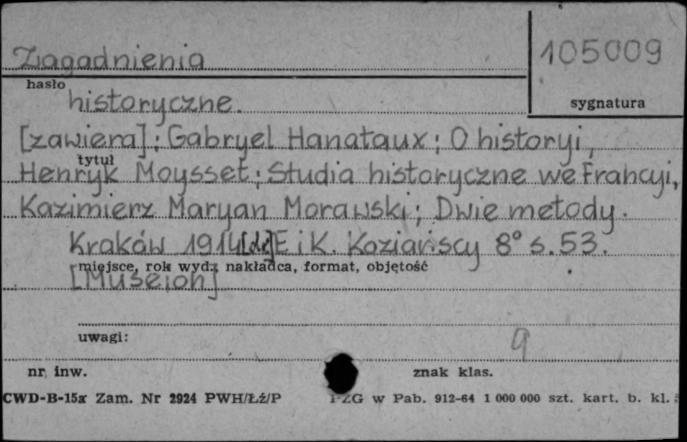 Zagadnienia
105009
hasło
sygnatura
historyczne.
[zawiera]: Gabryel Hanataux: O historyi,
tytuł
Henryk Moysset: Studia historyczne we Francyi,
Kazimierz Maryan Morawski: Dwie metody.
Kraków 1914 [dr] E i K. Koziańscy 8° s. 53.
miejsce, rok wyd., nakładca, format, objętość
[Museion]
uwagi:
9
nr inw.
znak klas.
CWD-B-15a Zam. Nr 2924 PWH/Łź/P
PZG w Pab. 912-64 1 000 000 szt. kart. b. kl.